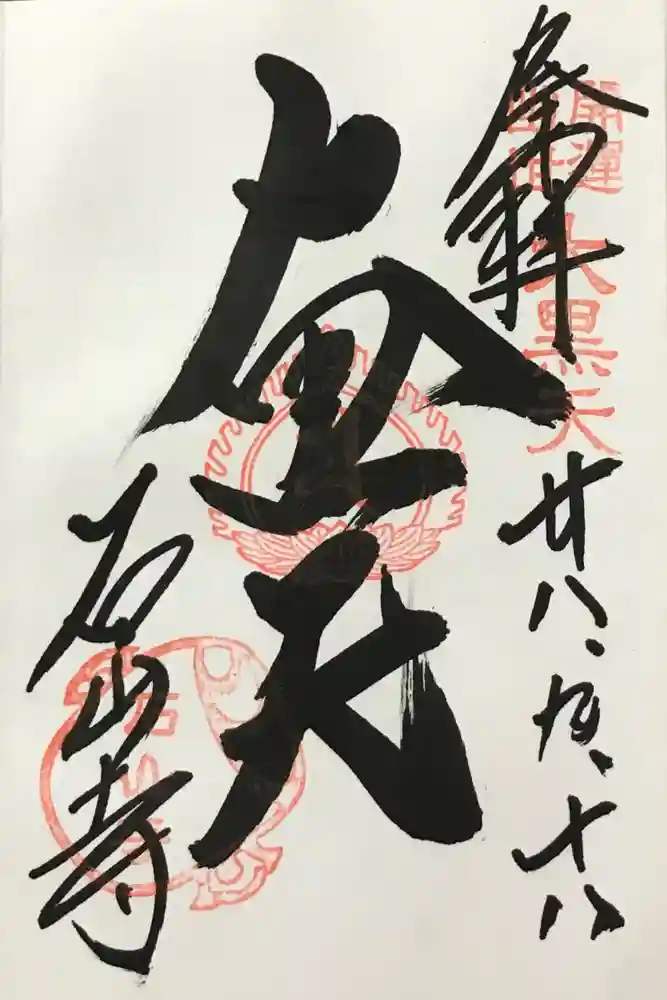 奉拝
開運
出世
大黒天
廿八、
十八
大黒天
石山寺
石山寺